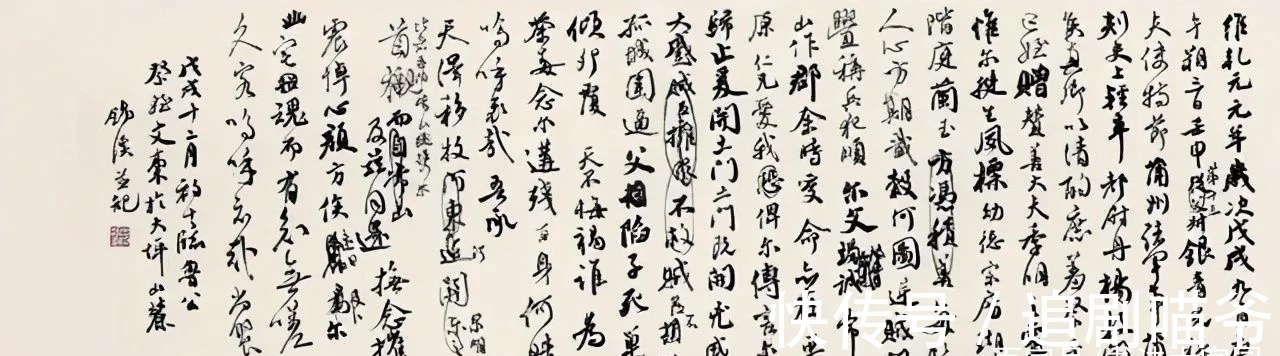 維乾元元年歲次戊戌九月
午朔三日壬申第十三從父叔銀青光
夫使持節蒲州諸軍事
刺史上輕車都尉丹楊縣
侯真卿以清酌庶羞祭
亡姪贈贊善大夫季明
惟爾挺生夙標幼德宗廟瑚
階庭蘭玉方憑積善
人心方期戩穀何圖逆賊
舋稱兵犯順爾父竭誠常
山作郡余時受命亦在平
原仁兄愛我恐俾爾傳言爾
歸止爰開土門土門既開兇威
大蹙賊臣擁眾不救賊臣不
孤城圍逼父擒陷子死巢
傾卵覆天不悔禍誰為
荼毒念爾遘殘百身何贖
嗚呼哀哉吾承
天澤移牧河東近河關泉明
首櫬而自常山
及茲同還撫念摧
震悼心顏方俟遠日卜爾
幽宅魂而有知無嗟
久客嗚呼哀哉尚饗
戊戌十二月初十臨魯公
祭姪文稾於大坪山麓
錫溪並記
快传号 / 追剧喵爷